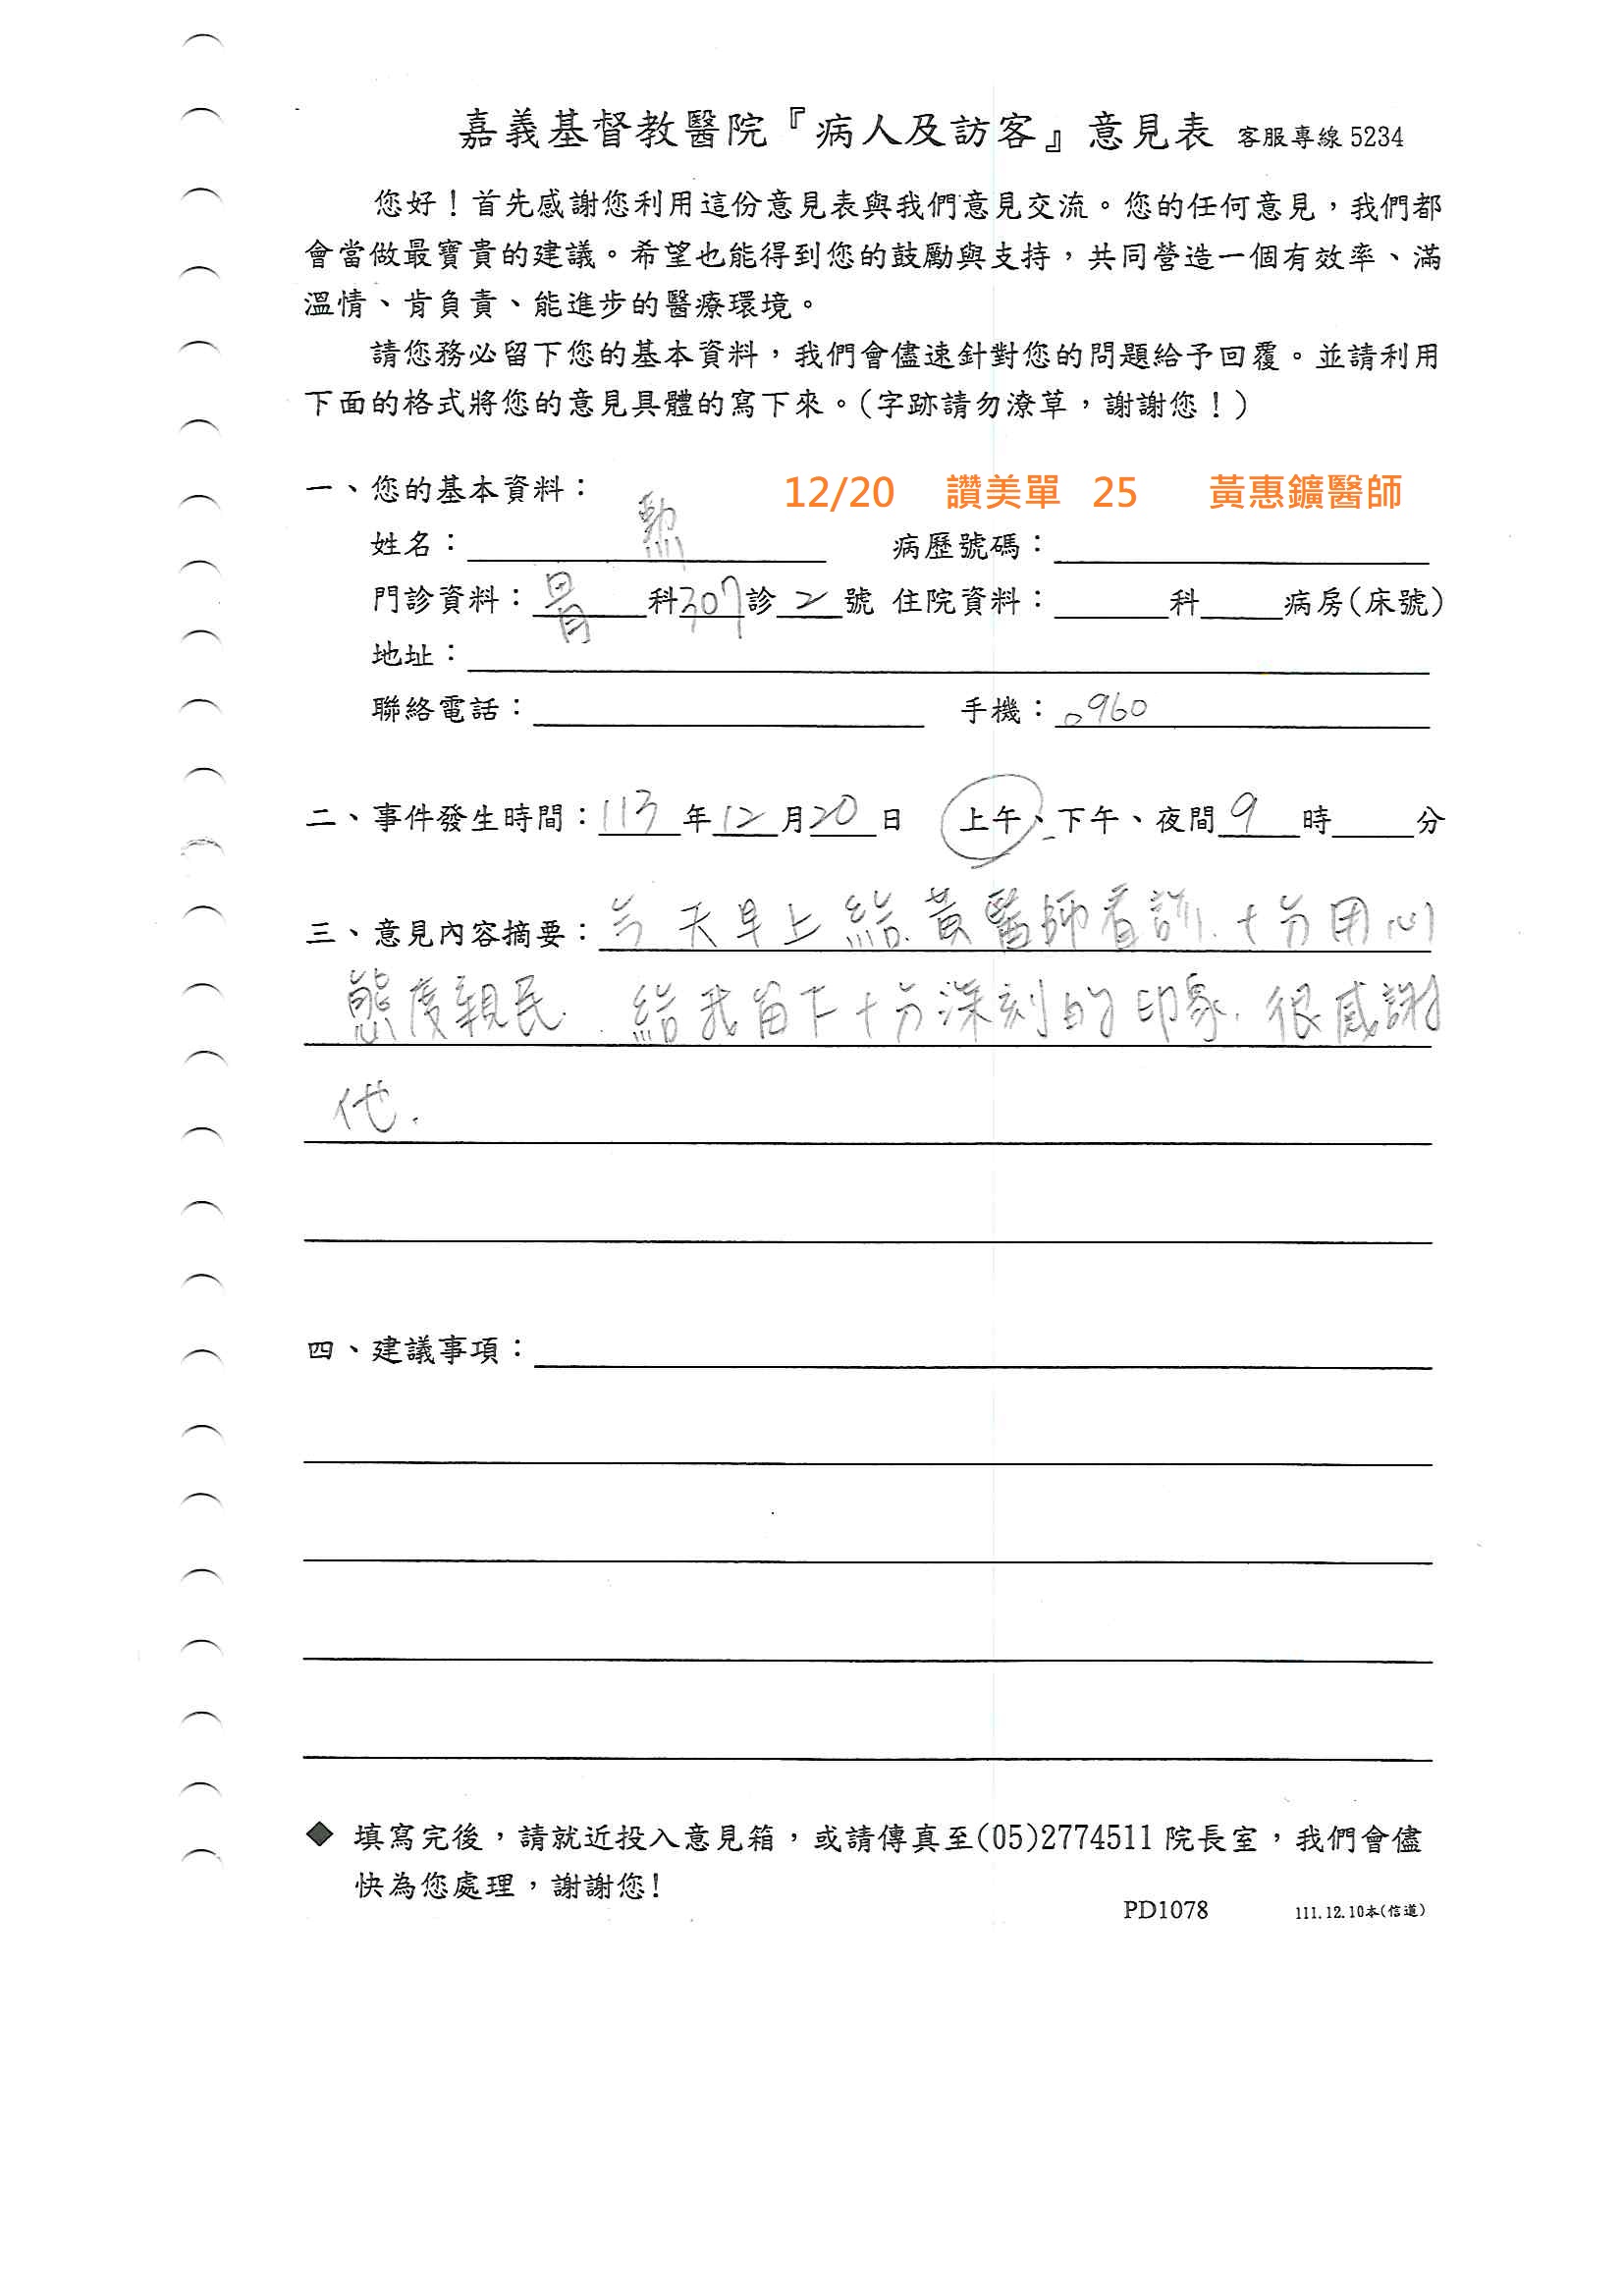 嘉義基督教醫院『病人及訪客』意見表 客服專線 5234
您好！首先感謝您利用這份意見表與我們意見交流。您的任何意見，我們都
會當做最寶貴的建議。希望也能得到您的鼓勵與支持，共同營造一個有效率、滿
溫情、肯負責、能進步的醫療環境。
請您務必留下您的基本資料，我們會儘速針對您的問題給予回覆。並請利用
下面的格式將您的意見具體的寫下來。(字跡請勿潦草，謝謝您！)
一、您的基本資料： 12/20 讚美單 25 黃惠鑛醫師
姓名：勲 病歷號碼：
門診資料：胃科307診2號 住院資料：科病房(床號)
地址：
聯絡電話： 手機：0960
二、事件發生時間：113年12月20日 上午、下午、夜間9時分
三、意見內容摘要：今天早上給黃醫師看診.十分用心
態度親民. 給我留下十分深刻的印象.很感謝
他.
四、建議事項：
◆ 填寫完後，請就近投入意見箱，或請傳真至(05)2774511 院長室，我們會儘
快為您處理，謝謝您!
PD1078 111.12.10本(信道)